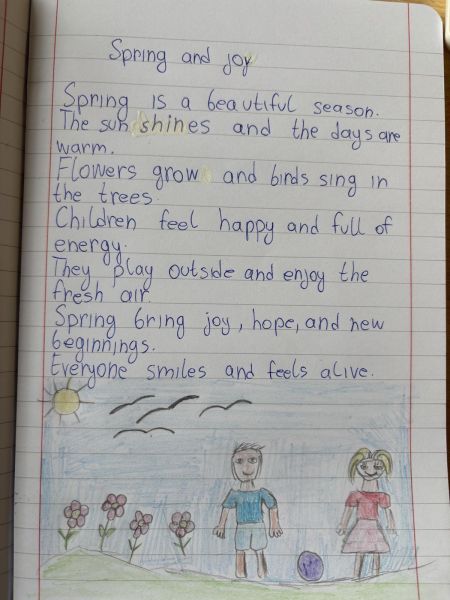 Spring and joy
Spring is a beautiful season.
The sun shines and the days are
warm.
Flowers grow and birds sing in
the trees.
Children feel happy and full of
energy.
They play outside and enjoy the
fresh air.
Spring bring joy, hope, and new
beginnings.
Everyone smiles and feels alive.